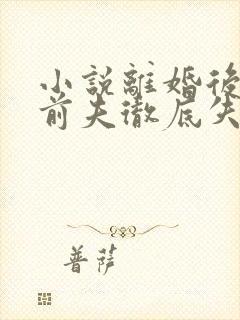 小說離婚後
前夫徹底失
菩薩